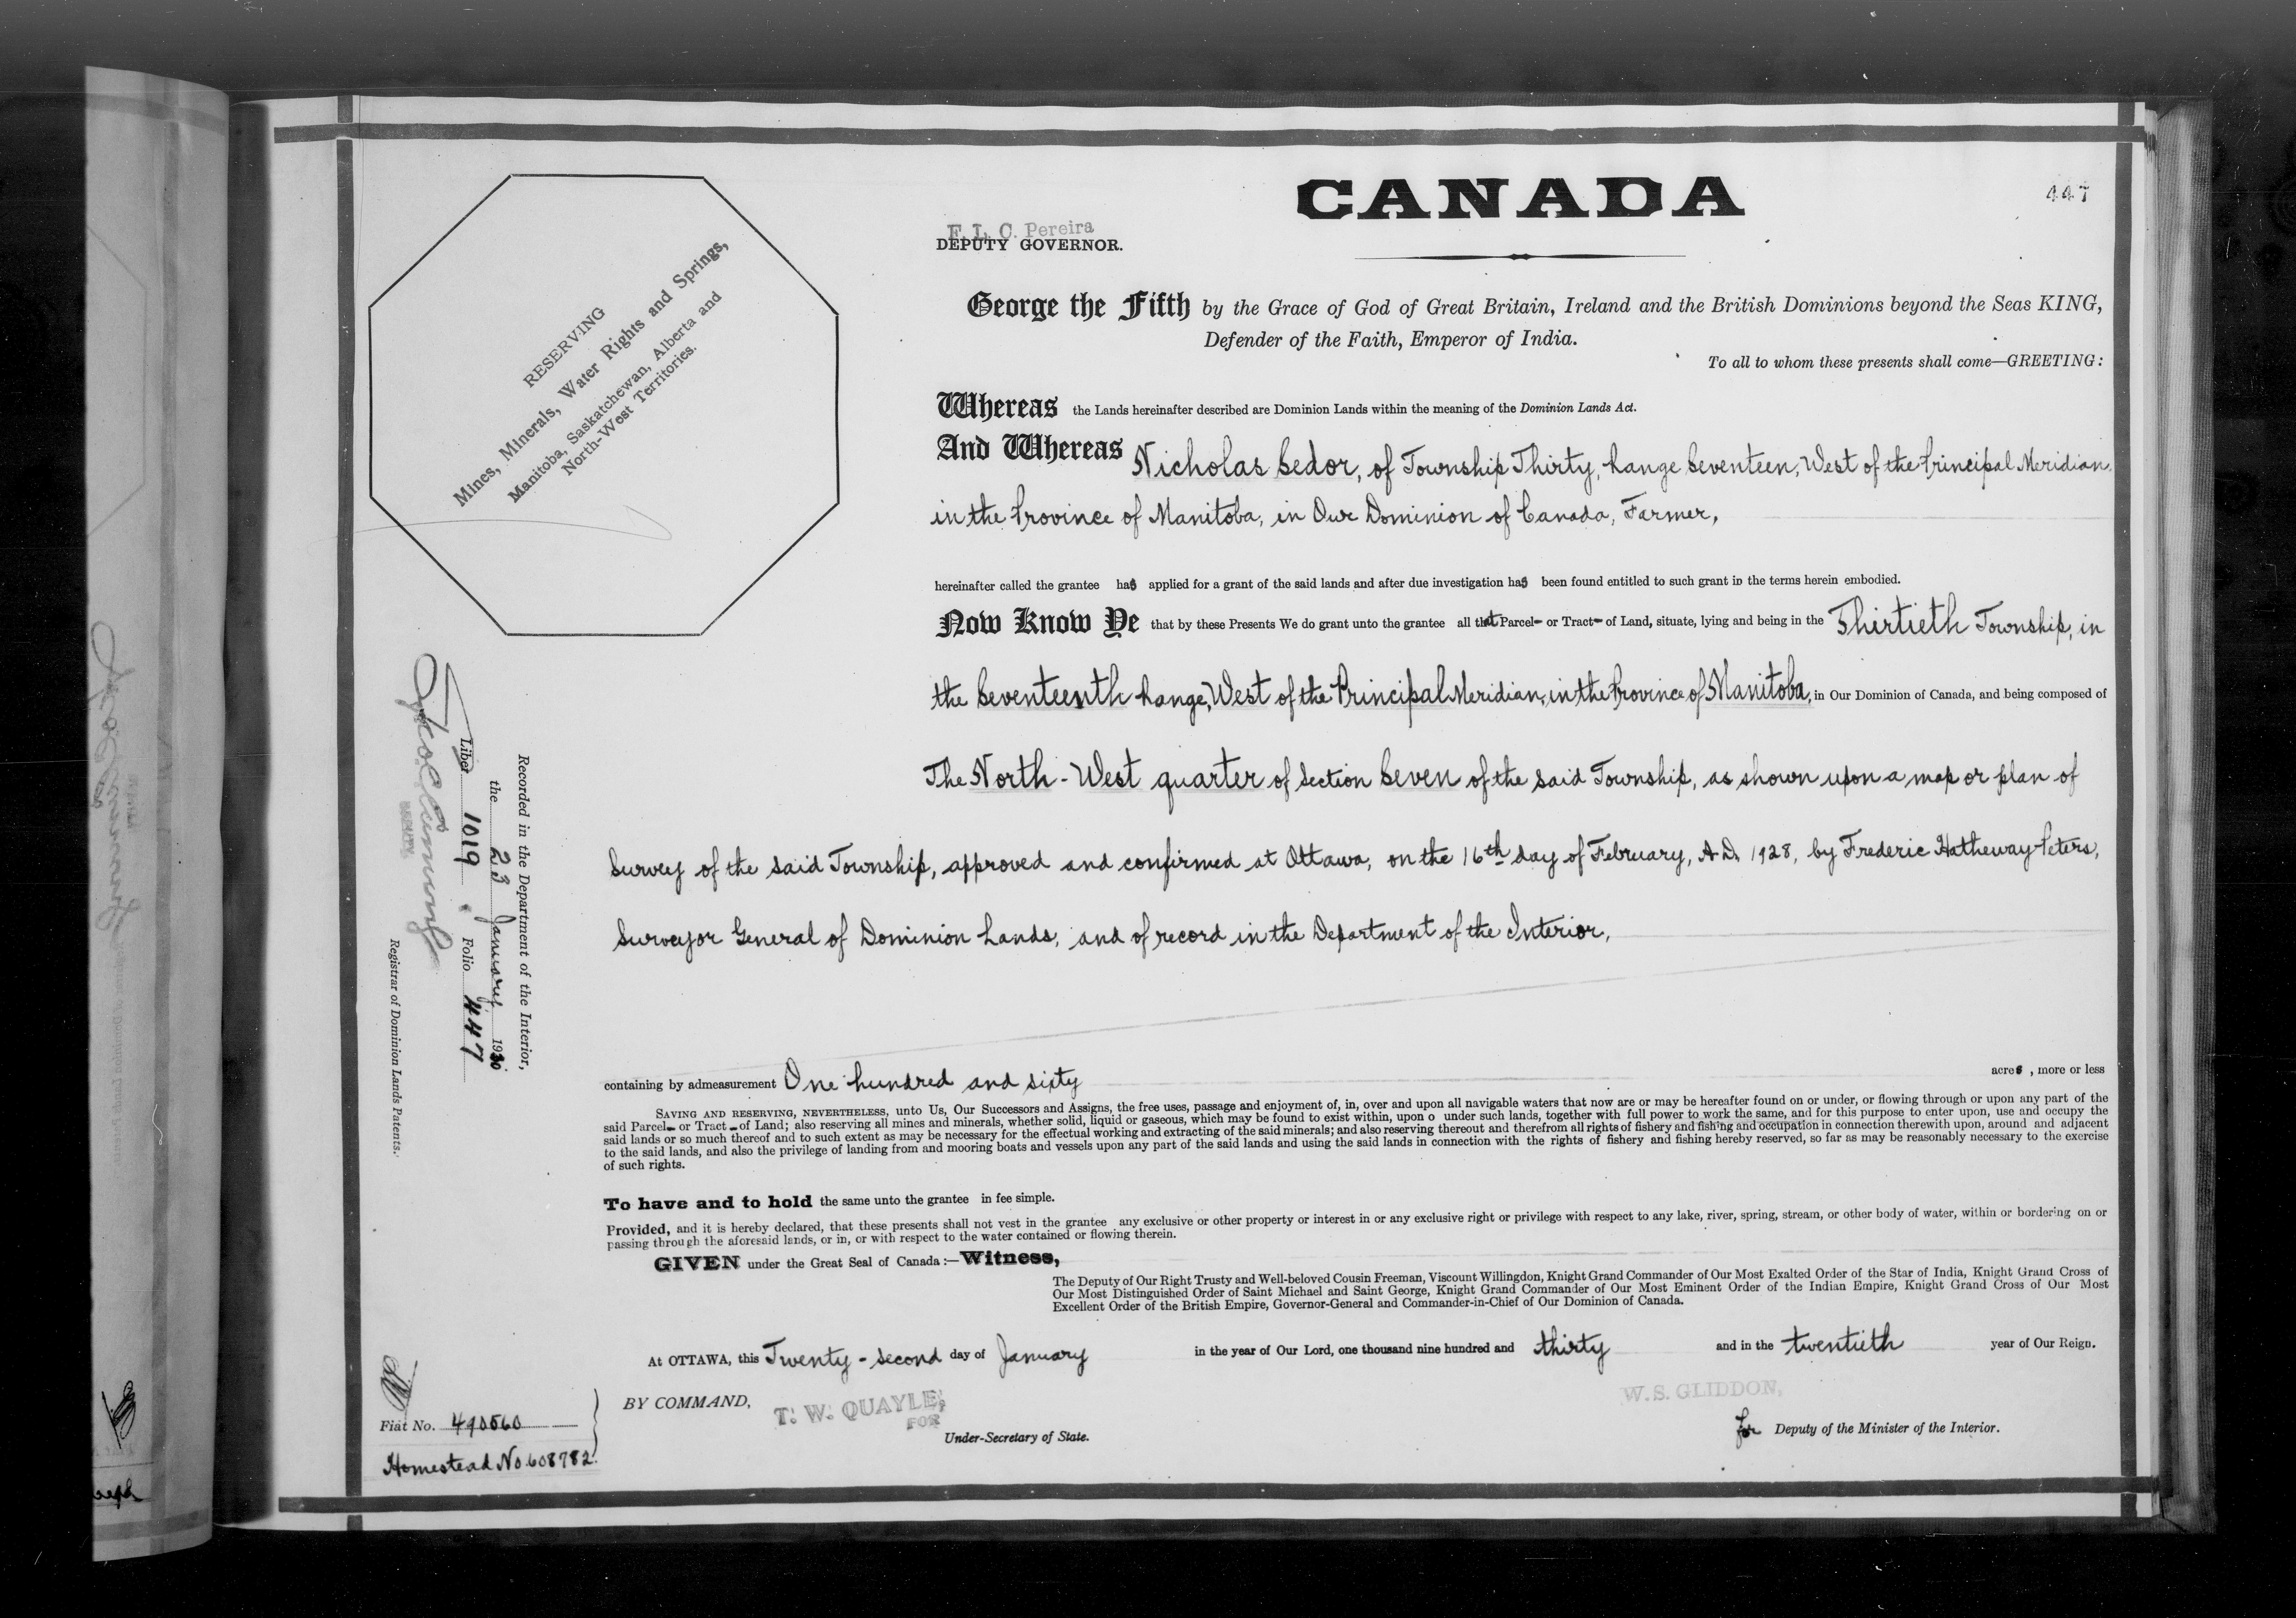 CANADA
447
F. L. C. Pereira
DEPUTY GOVERNOR.
RESERVING
Mines, Minerals, Water Rights and Springs,
Manitoba, Saskatchewan, Alberta and
North-West Territories.
George the Fifth by the Grace of God of Great Britain, Ireland and the British Dominions beyond the Seas KING,
Defender of the Faith, Emperor of India.
To all to whom these presents shall come—GREETING:
Whereas the Lands hereinafter described are Dominion Lands within the meaning of the Dominion Lands Act.
And Whereas Nicholas Sedor, of Township Thirty, Range Seventeen, West of the Principal Meridian,
in the Province of Manitoba, in Our Dominion of Canada, Farmer,
hereinafter called the grantee has applied for a grant of the said lands and after due investigation has been found entitled to such grant in the terms herein embodied.
Now Know Ye that by these Presents We do grant unto the grantee all that Parcel- or Tract- of Land, situate, lying and being in the Thirtieth Township, in
the Seventeenth Range, West of the Principal Meridian, in the Province of Manitoba, in Our Dominion of Canada, and being composed of
The North-West quarter of Section Seven of the said Township, as shown upon a map or plan of
Survey of the said Township, approved and confirmed at Ottawa, on the 16th day of February, A.D. 1928, by Frederic Hatheway Peters,
Surveyor General of Dominion Lands, and of record in the Department of the Interior,
containing by admeasurement One hundred and sixty acres, more or less
SAVING AND RESERVING, NEVERTHELESS, unto Us, Our Successors and Assigns, the free uses, passage and enjoyment of, in, over and upon all navigable waters that now are or may be hereafter found on or under, or flowing through or upon any part of the
said Parcel- or Tract- of Land; also reserving all mines and minerals, whether solid, liquid or gaseous, which may be found to exist within, upon o under such lands, together with full power to work the same, and for this purpose to enter upon, use and occupy the
said lands or so much thereof and to such extent as may be necessary for the effectual working and extracting of the said minerals; and also reserving thereout and therefrom all rights of fishery and fishing and occupation in connection therewith upon, around and adjacent
to the said lands, and also the privilege of landing from and mooring boats and vessels upon any part of the said lands and using the said lands in connection with the rights of fishery and fishing hereby reserved, so far as may be reasonably necessary to the exercise
of such rights.
To have and to hold the same unto the grantee in fee simple.
Provided, and it is hereby declared, that these presents shall not vest in the grantee any exclusive or other property or interest in or any exclusive right or privilege with respect to any lake, river, spring, stream, or other body of water, within or bordering on or
passing through the aforesaid lands, or in, or with respect to the water contained or flowing therein.
GIVEN under the Great Seal of Canada:—Witness,
The Deputy of Our Right Trusty and Well-beloved Cousin Freeman, Viscount Willingdon, Knight Grand Commander of Our Most Exalted Order of the Star of India, Knight Grand Cross of
Our Most Distinguished Order of Saint Michael and Saint George, Knight Grand Commander of Our Most Eminent Order of the Indian Empire, Knight Grand Cross of Our Most
Excellent Order of the British Empire, Governor-General and Commander-in-Chief of Our Dominion of Canada.
At OTTAWA, this Twenty-second day of January in the year of Our Lord, one thousand nine hundred and thirty and in the twentieth year of Our Reign.
BY COMMAND,
T. W. QUAYLE,
FOR
Under-Secretary of State.
W.S. GLIDDON,
for Deputy of the Minister of the Interior.
Recorded in the Department of the Interior,
the 23 January 1930
Liber 1019 Folio 447
DEPUTY
Registrar of Dominion Lands Patents.
Fiat No. 490560
Homestead No. 608782.